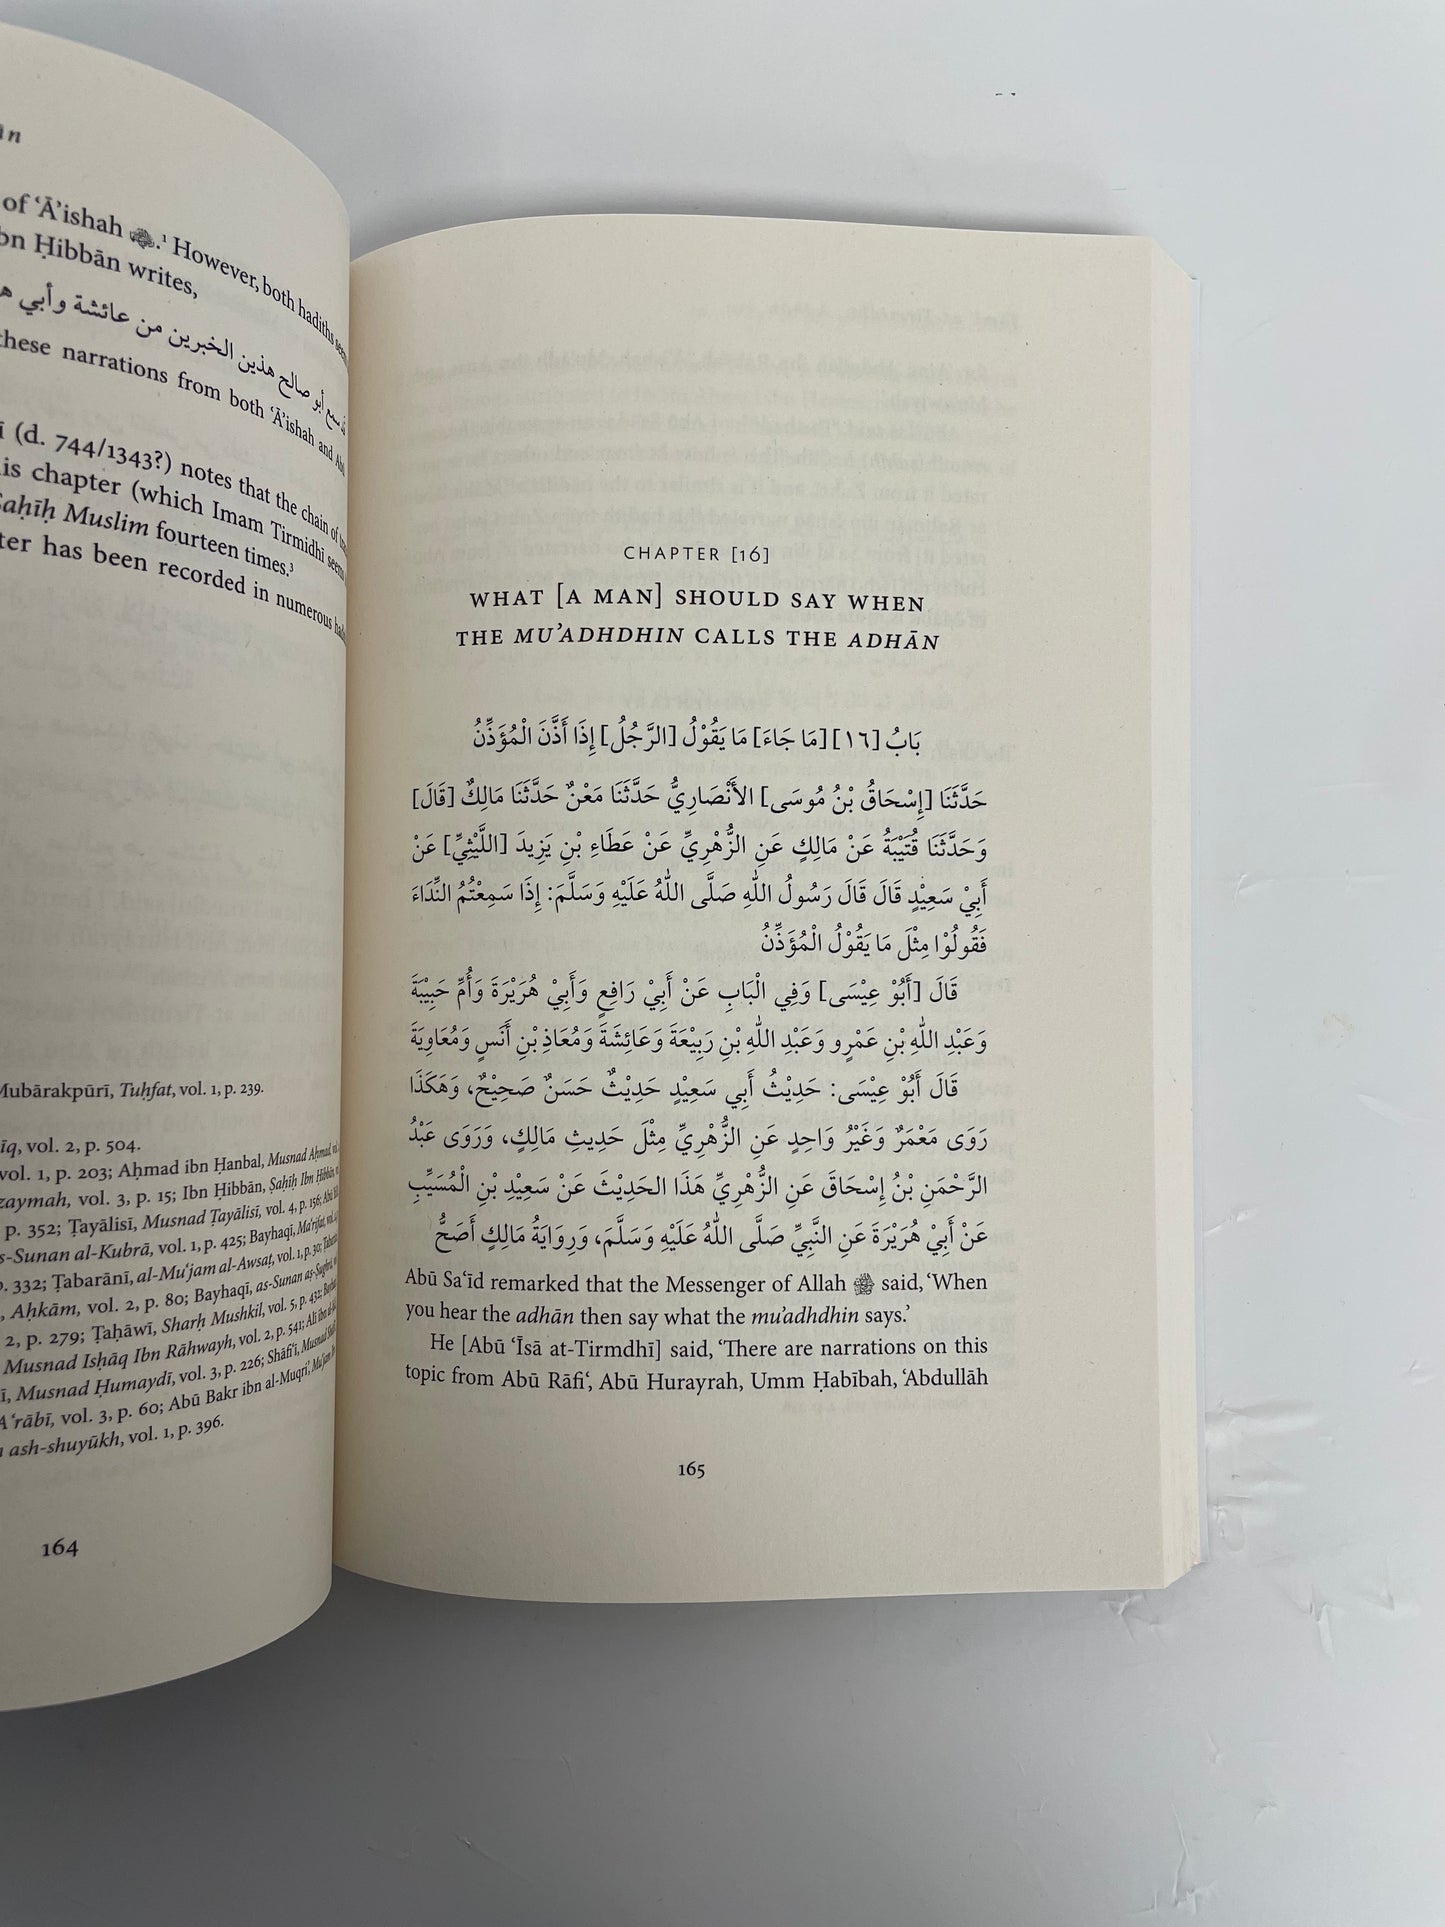 ān
of ‘Ā’ishah .¹ However, both hadiths
Ḥibbān writes,
سمع أبو صالح هذين الخبرين من عائشة وأبي
these narrations from both ‘Ā’ishah and
(d. 744/1343?) notes that the chain of
is chapter (which Imam Tirmidhī
Ṣaḥīḥ Muslim fourteen times.³
ter has been recorded in numerous
Mubārakpūrī, Tuḥfat, vol. 1, p. 239.
īq, vol. 2, p. 504.
vol. 1, p. 203; Aḥmad ibn Ḥanbal, Musnad Aḥmad,
zaymah, vol. 3, p. 15; Ibn Ḥibbān, Ṣaḥīḥ Ibn Ḥibbān,
p. 352; Ṭayālisī, Musnad Ṭayālisī, vol. 4, p. 156;
s-Sunan al-Kubrā, vol. 1, p. 425; Bayhaqī, Ma‘rifat,
p. 332; Ṭabarānī, al-Mu‘jam al-Awsaṭ, vol. 1, p. 30;
, Aḥkām, vol. 2, p. 80; Bayhaqī, as-Sunan aṣ-Ṣughrā,
2, p. 279; Ṭaḥāwī, Sharḥ Mushkil, vol. 5, p. 432;
Musnad Isḥāq Ibn Rāhwayh, vol. 2, p. 541;
ī, Musnad Ḥumaydī, vol. 3, p. 226; Shāfi‘ī, Musnad
A‘rābī, vol. 3, p. 60; Abū Bakr ibn al-Muqri’,
ash-shuyūkh, vol. 1, p. 396.
164
CHAPTER [16]
WHAT [A MAN] SHOULD SAY WHEN
THE MU’ADHDHIN CALLS THE ADHĀN
بَابُ [١٦] [مَا جَاءَ] مَا يَقُوْلُ [الرَّجُلُ] إِذَا أَذَّنَ الْمُؤَذِّنُ
حَدَّثَنَا [إِسْحَاقُ بْنُ مُوسَى] الأَنْصَارِيُّ حَدَّثَنَا مَعْنٌ حَدَّثَنَا مَالِكٌ [قَالَ]
وَحَدَّثَنَا قُتَيْبَةُ عَنْ مَالِكٍ عَنِ الزُّهْرِيِّ عَنْ عَطَاءِ بْنِ يَزِيدَ [اللَّيْثِيِّ] عَنْ
أَبِيْ سَعِيْدٍ قَالَ قَالَ رَسُولُ اللهِ صَلَّى اللهُ عَلَيْهِ وَسَلَّمَ: إِذَا سَمِعْتُمُ النِّدَاءَ
فَقُولُوْا مِثْلَ مَا يَقُوْلُ الْمُؤَذِّنُ
قَالَ [أَبُوْ عِيْسَى] وَفِي الْبَابِ عَنْ أَبِيْ رَافِعٍ وَأَبِيْ هُرَيْرَةَ وَأُمِّ حَبِيْبَةَ
وَعَبْدِ اللهِ بْنِ عَمْرٍو وَعَبْدِ اللهِ بْنِ رَبِيْعَةَ وَعَائِشَةَ وَمُعَاذِ بْنِ أَنَسٍ وَمُعَاوِيَةَ
قَالَ أَبُوْ عِيْسَى: حَدِيْثُ أَبِي سَعِيْدٍ حَدِيْثٌ حَسَنٌ صَحِيْحٌ، وَهَكَذَا
رَوَى مَعْمَرٌ وَغَيْرُ وَاحِدٍ عَنِ الزُّهْرِيِّ مِثْلَ حَدِيثِ مَالِكٍ، وَرَوَى عَبْدُ
الرَّحْمَنِ بْنُ إِسْحَاقَ عَنِ الزُّهْرِيِّ هَذَا الحَدِيْثَ عَنْ سَعِيْدِ بْنِ الْمُسَيِّبِ
عَنْ أَبِيْ هُرَيْرَةَ عَنِ النَّبِيِّ صَلَّى اللهُ عَلَيْهِ وَسَلَّمَ، وَرِوَايَةُ مَالِكٍ أَصَحُّ
Abū Sa‘īd remarked that the Messenger of Allah ﷺ said, ‘When
you hear the adhān then say what the mu’adhdhin says.’
He [Abū ‘Īsā at-Tirmdhī] said, ‘There are narrations on this
topic from Abū Rāfi‘, Abū Hurayrah, Umm Ḥabībah, ‘Abdullāh
165